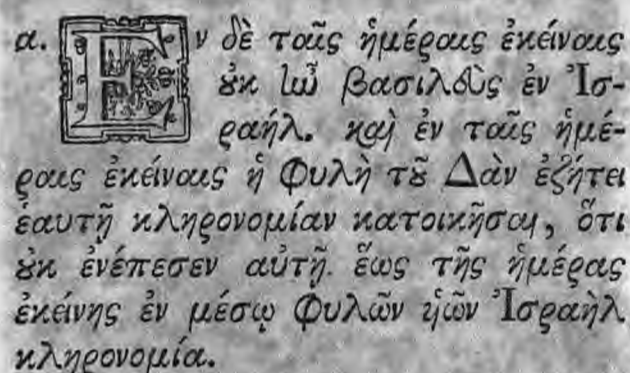 α. Εν δὲ ταῖς ἡμέραις ἐκείναις
οὐκ ἦν βασιλεὺς ἐν Ἰσ-
ραήλ. καὶ ἐν ταῖς ἡμέ-
ραις ἐκείναις ἡ φυλὴ τοῦ Δὰν ἐζήτει
ἑαυτῇ κληρονομίαν κατοικῆσαι, ὅτι
οὐκ ἐνέπεσεν αὐτῇ. ἕως τῆς ἡμέρας
ἐκείνης ἐν μέσῳ φυλῶν υἱῶν Ἰσραὴλ
κληρονομία.